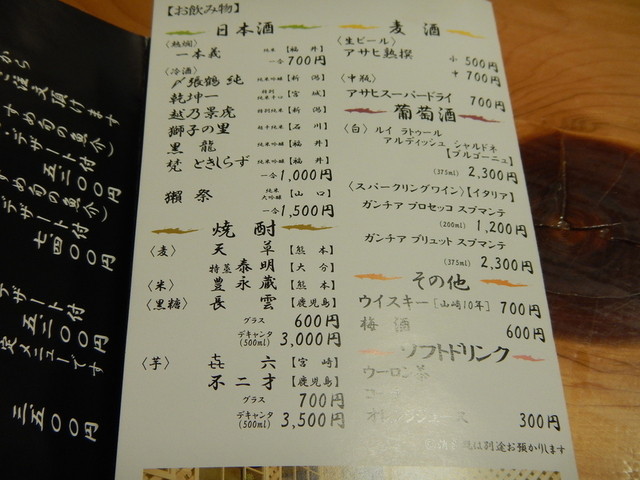 【お飲み物】
日本酒
〈熱燗〉
一本義 純米 【福井】
一合 700円
〈冷酒〉
〆張鶴 純 純米吟醸 【新潟】
乾坤一 特別純米辛口 【宮城】
越乃景虎 特別純米 【新潟】
獅子の里 純米 【石川】
黒龍 純米吟醸 【福井】
梵 ときしらず 純米吟醸 【福井】
一合 1,000円
獺祭 純米大吟醸 【山口】
一合 1,500円
焼酎
〈麦〉 天草 【熊本】
特蒸泰明 【大分】
〈米〉 豊永蔵 【熊本】
〈黒糖〉 長雲 【鹿児島】
グラス 600円
デキャンタ(500ml) 3,000円
〈芋〉 㐂六 【宮崎】
不二才 【鹿児島】
グラス 700円
デキャンタ(500ml) 3,500円
麦酒
〈生ビール〉
アサヒ熟撰 小 500円
中 700円
〈中瓶〉
アサヒスーパードライ 700円
葡萄酒
〈白〉ルイ ラトゥール
アルディッシュ シャルドネ
【ブルゴーニュ】
(375ml) 2,300円
〈スパークリングワイン〉【イタリア】
ガンチア プロセッコ スプマンテ
(200ml) 1,200円
ガンチア ブリュット スプマンテ
(375ml) 2,300円
その他
ウイスキー [山崎10年] 700円
梅酒 600円
ソフトドリンク
ウーロン茶
オレンジジュース 300円
は別途お預かりします
から
ご注文頂けます
すめ旬の魚介〉
デザート付
五二〇〇円
旬の魚介〉
デザート付
七四〇〇円
デザート付
五二〇〇円
定メニューです
三五〇〇円